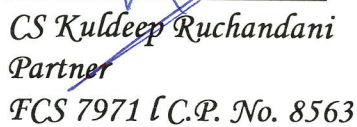 CS Kuldeep Ruchandani
Partner
FCS 7971 l C.P. No. 8563